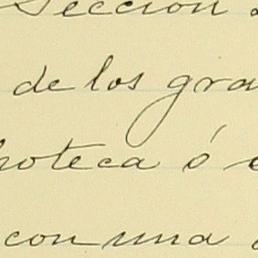 Sección
de los gra
poteca ó
con una